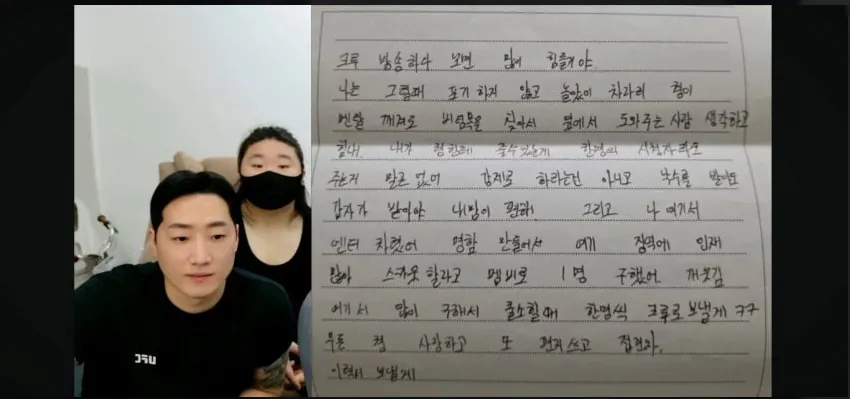 크루 방송하다 보면 많이 힘들거야.
나는 그럴때 포기하지 않고 놀았어 차라리 형이
멘탈 깨져도 버팀목을 찾아서 옆에서 도와주는 사람 생각하고
힘내. 내가 형한테 줄수있는게 한명의 시청자라도
주는거 말곤 없어 강제로 하라는건 아니고 낙수를 받아도
감자가 받아야 내맘이 편해. 그리고 나 여기서
엔터 차렸어 명함 만들어서 여기 징역에 인재
많아 스카웃 할라고 멤버로 1명 구했어. 개웃김
여기서 많이 구해서 출소할때 한명씩 크루로 보낼게 ㅋㅋ
무튼 형 사랑하고 또 편지쓰고 접견와.
이력서 보낼게